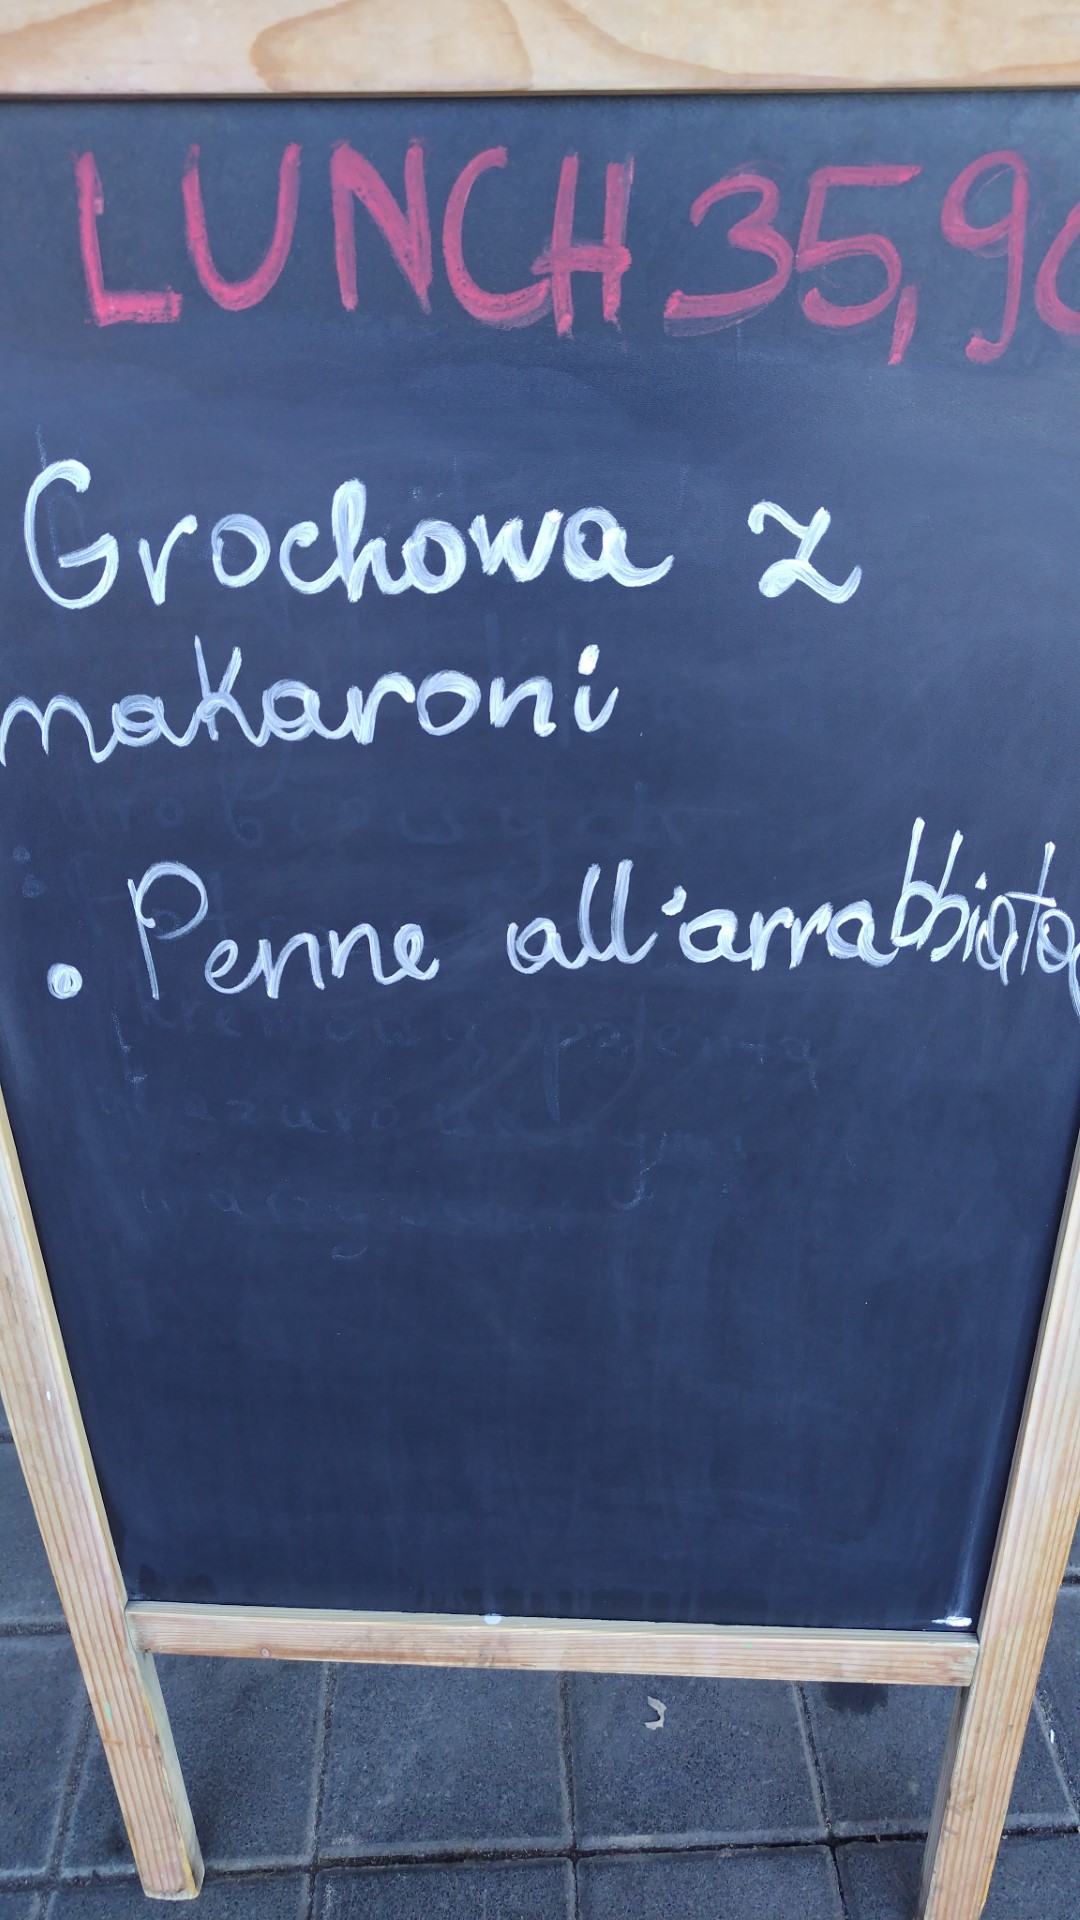 LUNCH 35,90
Grochowa z
makaroni
• Penne all'arrabbiata